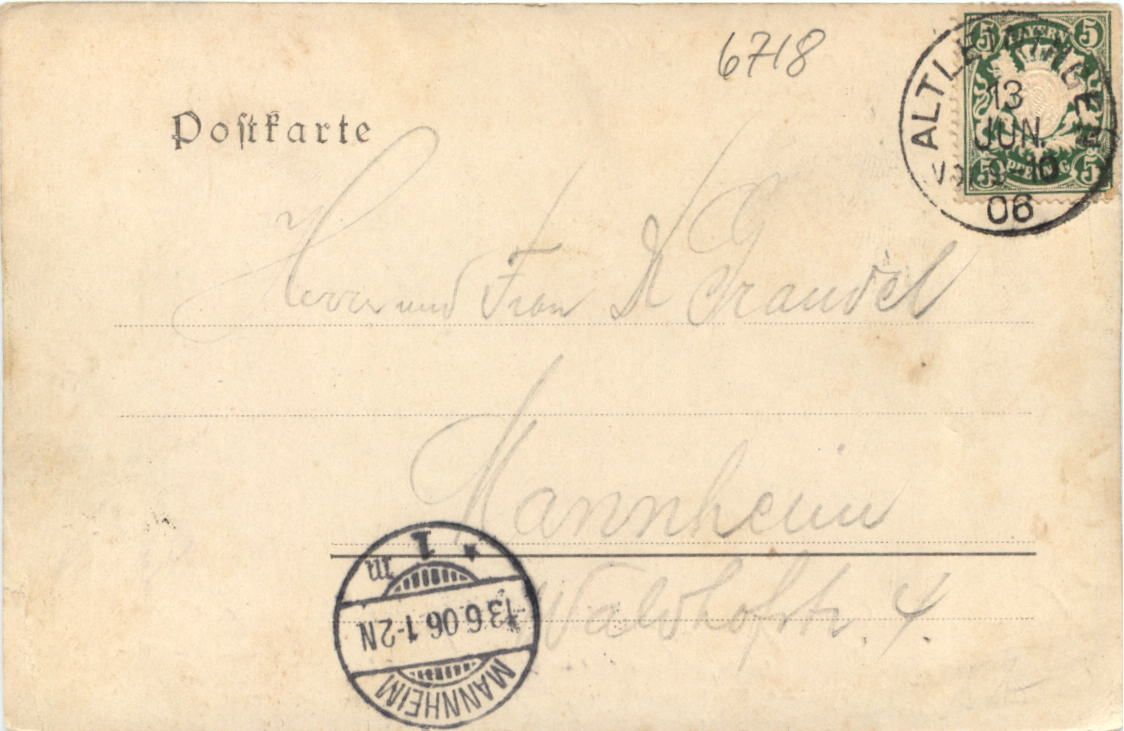 6718
Postkarte
5 BAYERN 5
5 PFENNIG 5
ALTLEININGEN
13
JUN.
10
06
Herrn und Frau K Grandel
Mannheim
Waldhofstr. 4
MANNHEIM
13.6.06.1-2N
* 1 m